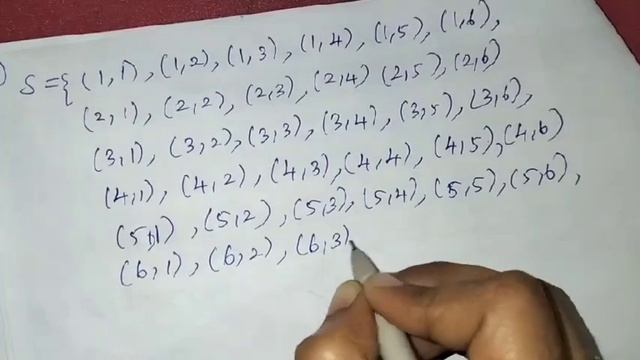 ) S={ (1,1), (1,2), (1,3), (1,4), (1,5), (1,6),
(2,1), (2,2), (2,3), (2,4) (2,5), (2,6)
(3,1), (3,2), (3,3), (3,4), (3,5), (3,6),
(4,1), (4,2), (4,3), (4,4), (4,5), (4,6)
(5,1), (5,2), (5,3), (5,4), (5,5), (5,6),
(6,1), (6,2), (6,3)